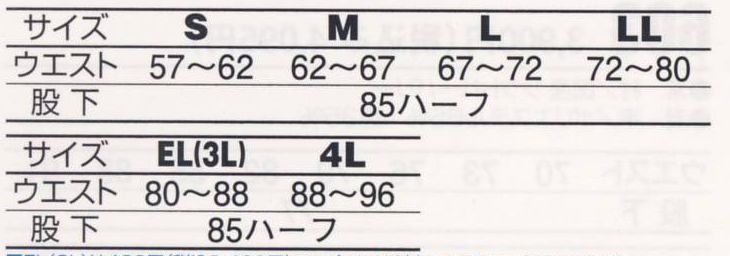 サイズ S M L LL
ウエスト 57〜62 62〜67 67〜72 72〜80
股下 85ハーフ
サイズ EL(3L) 4L
ウエスト 80〜88 88〜96
股下 85ハーフ